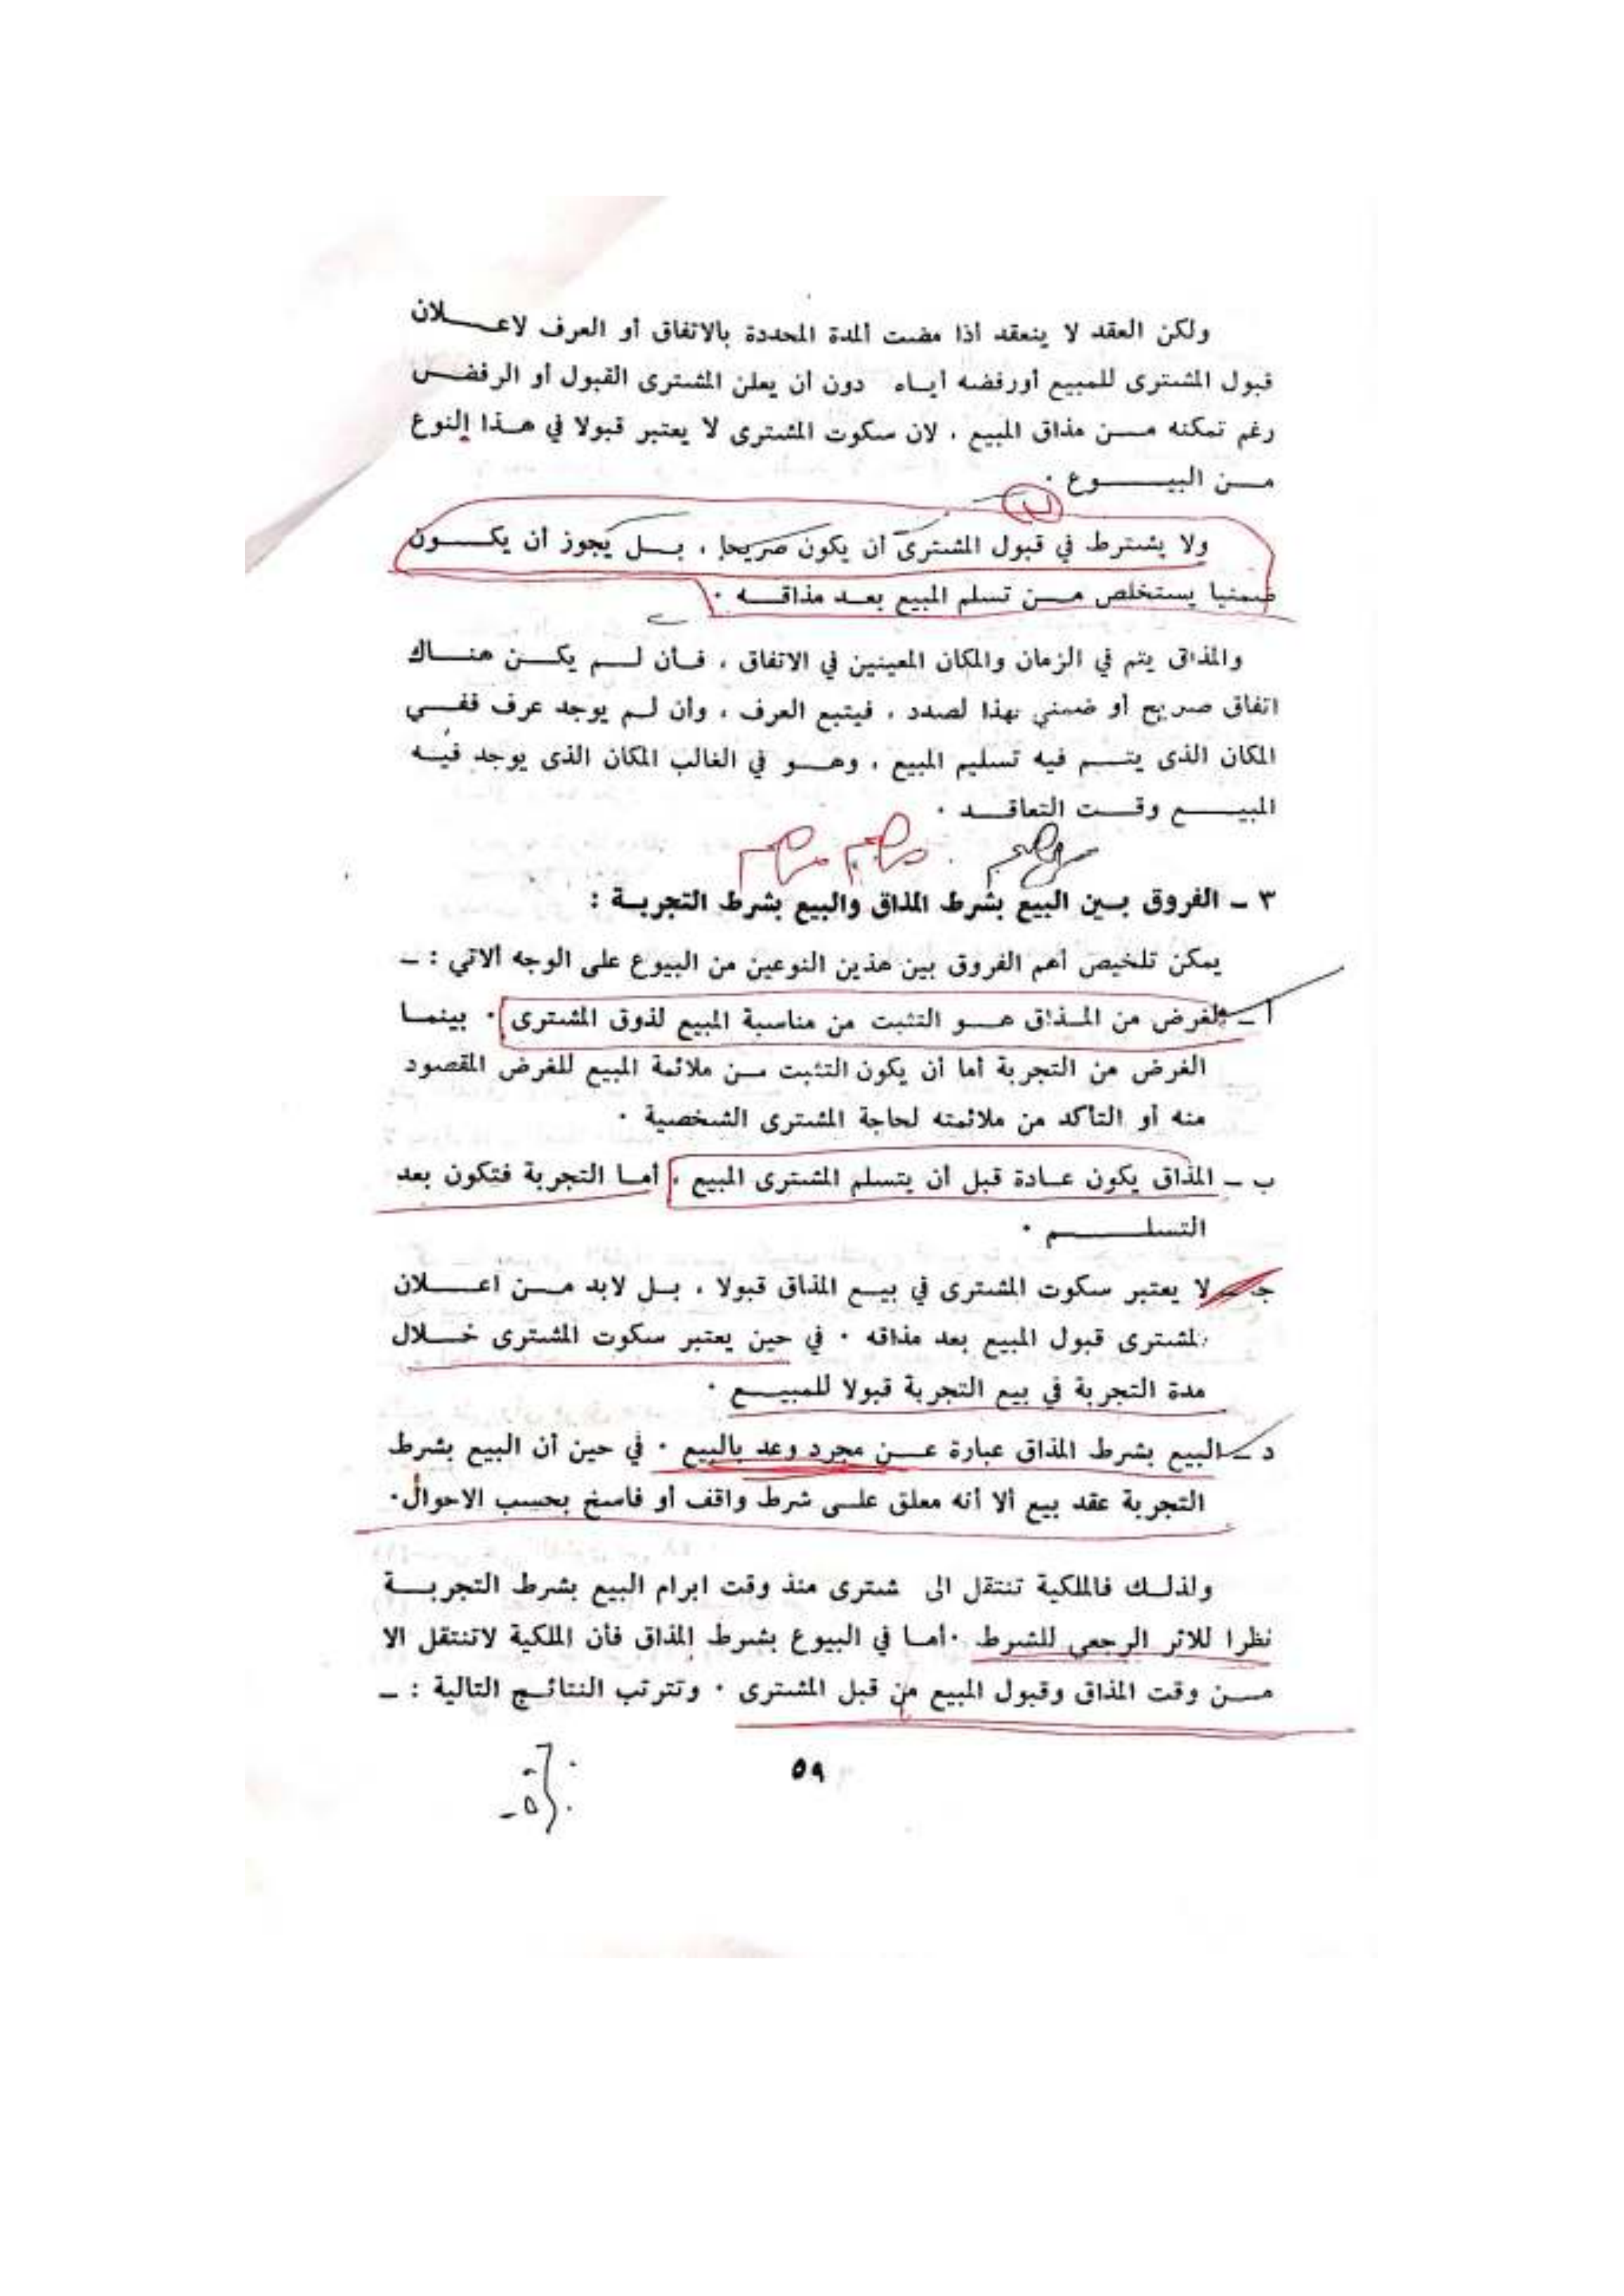 ولكن العقد لا ينعقد اذا مضت المدة المحددة بالاتفاق أو العرف لاعلان
قبول المشترى للمبيع أورفضه أياه دون أن يعلن المشترى القبول أو الرفض
رغم تمكنه من مذاق المبيع ، لان سكوت المشترى لا يعتبر قبولا في هذا النوع
من البيوع ٠
ولا يشترط في قبول المشترى أن يكون صريحا ، بل يجوز أن يكون
ضمنيا يستخلص من تسلم المبيع بعد مذاقه ٠
والمذاق يتم في الزمان والمكان المعينين في الاتفاق ، فأن لم يكن هناك
اتفاق صريح أو ضمني بهذا لصدد ، فيتبع العرف ، وأن لم يوجد عرف ففي
المكان الذى يتم فيه تسليم المبيع ، وهو في الغالب المكان الذى يوجد فيه
المبيع وقت التعاقد ٠
مهم مهم مهم
٣ ـ الفروق بين البيع بشرط المذاق والبيع بشرط التجربة :
يمكن تلخيص أهم الفروق بين هذين النوعين من البيوع على الوجه ألاتي : ـ
أ ـ الغرض من المذاق هو التثبت من مناسبة المبيع لذوق المشترى ٠ بينما
الغرض من التجربة أما أن يكون التثبت من ملائمة المبيع للغرض المقصود
منه أو التأكد من ملائمته لحاجة المشترى الشخصية ٠
ب ـ المذاق يكون عادة قبل أن يتسلم المشترى المبيع ، أما التجربة فتكون بعد
التسلم ٠
جـ ـ لا يعتبر سكوت المشترى في بيع المذاق قبولا ، بل لابد من اعلان
المشترى قبول المبيع بعد مذاقه ٠ في حين يعتبر سكوت المشترى خلال
مدة التجربة في بيع التجربة قبولا للمبيع ٠
د ـ البيع بشرط المذاق عبارة عن مجرد وعد بالبيع ٠ في حين أن البيع بشرط
التجربة عقد بيع ألا أنه معلق على شرط واقف أو فاسخ بحسب الاحوال ٠
ولذلك فالملكية تنتقل الى شترى منذ وقت ابرام البيع بشرط التجربة
نظرا للاثر الرجعي للشرط ٠ أما في البيوع بشرط المذاق فأن الملكية لاتنتقل الا
من وقت المذاق وقبول المبيع من قبل المشترى ٠ وتترتب النتائج التالية : ـ
٥٩